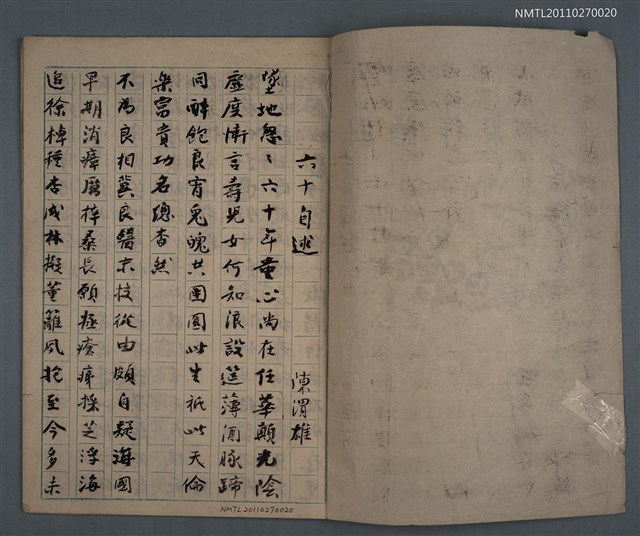 NMTL20110270020
六十自述　陳渭雄
墜地忽々六十年童心尚在任華顛光陰
虛度慚言壽兒女何知浪設筵薄酒豚蹄
同醉飽良宵兔魄共團圓此生祇此天倫
樂富貴功名總杳然
不為良相冀良醫末技從由頗自疑海國
早期消瘴厲梓桑長願極瘡痍採芝浮海
追徐棹種杏成林擬董籬夙抱至今多未
NMTL20110270020